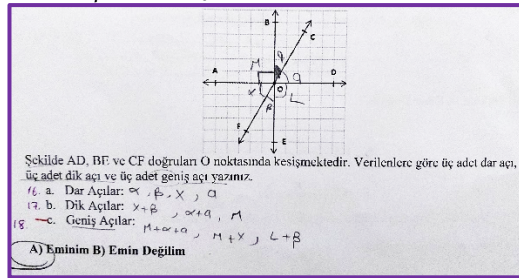 B
C
q
M
A
a
D
x
O
L
β
F
E
Şekilde AD, BE ve CF doğruları O noktasında kesişmektedir. Verilenlere göre üç adet dar açı,
üç adet dik açı ve üç adet geniş açı yazınız.
16. a. Dar Açılar: α, β, x, a
17. b. Dik Açılar: x+β, α+a, M
18. c. Geniş Açılar: M+α+a, M+x, L+β
A) Eminim B) Emin Değilim